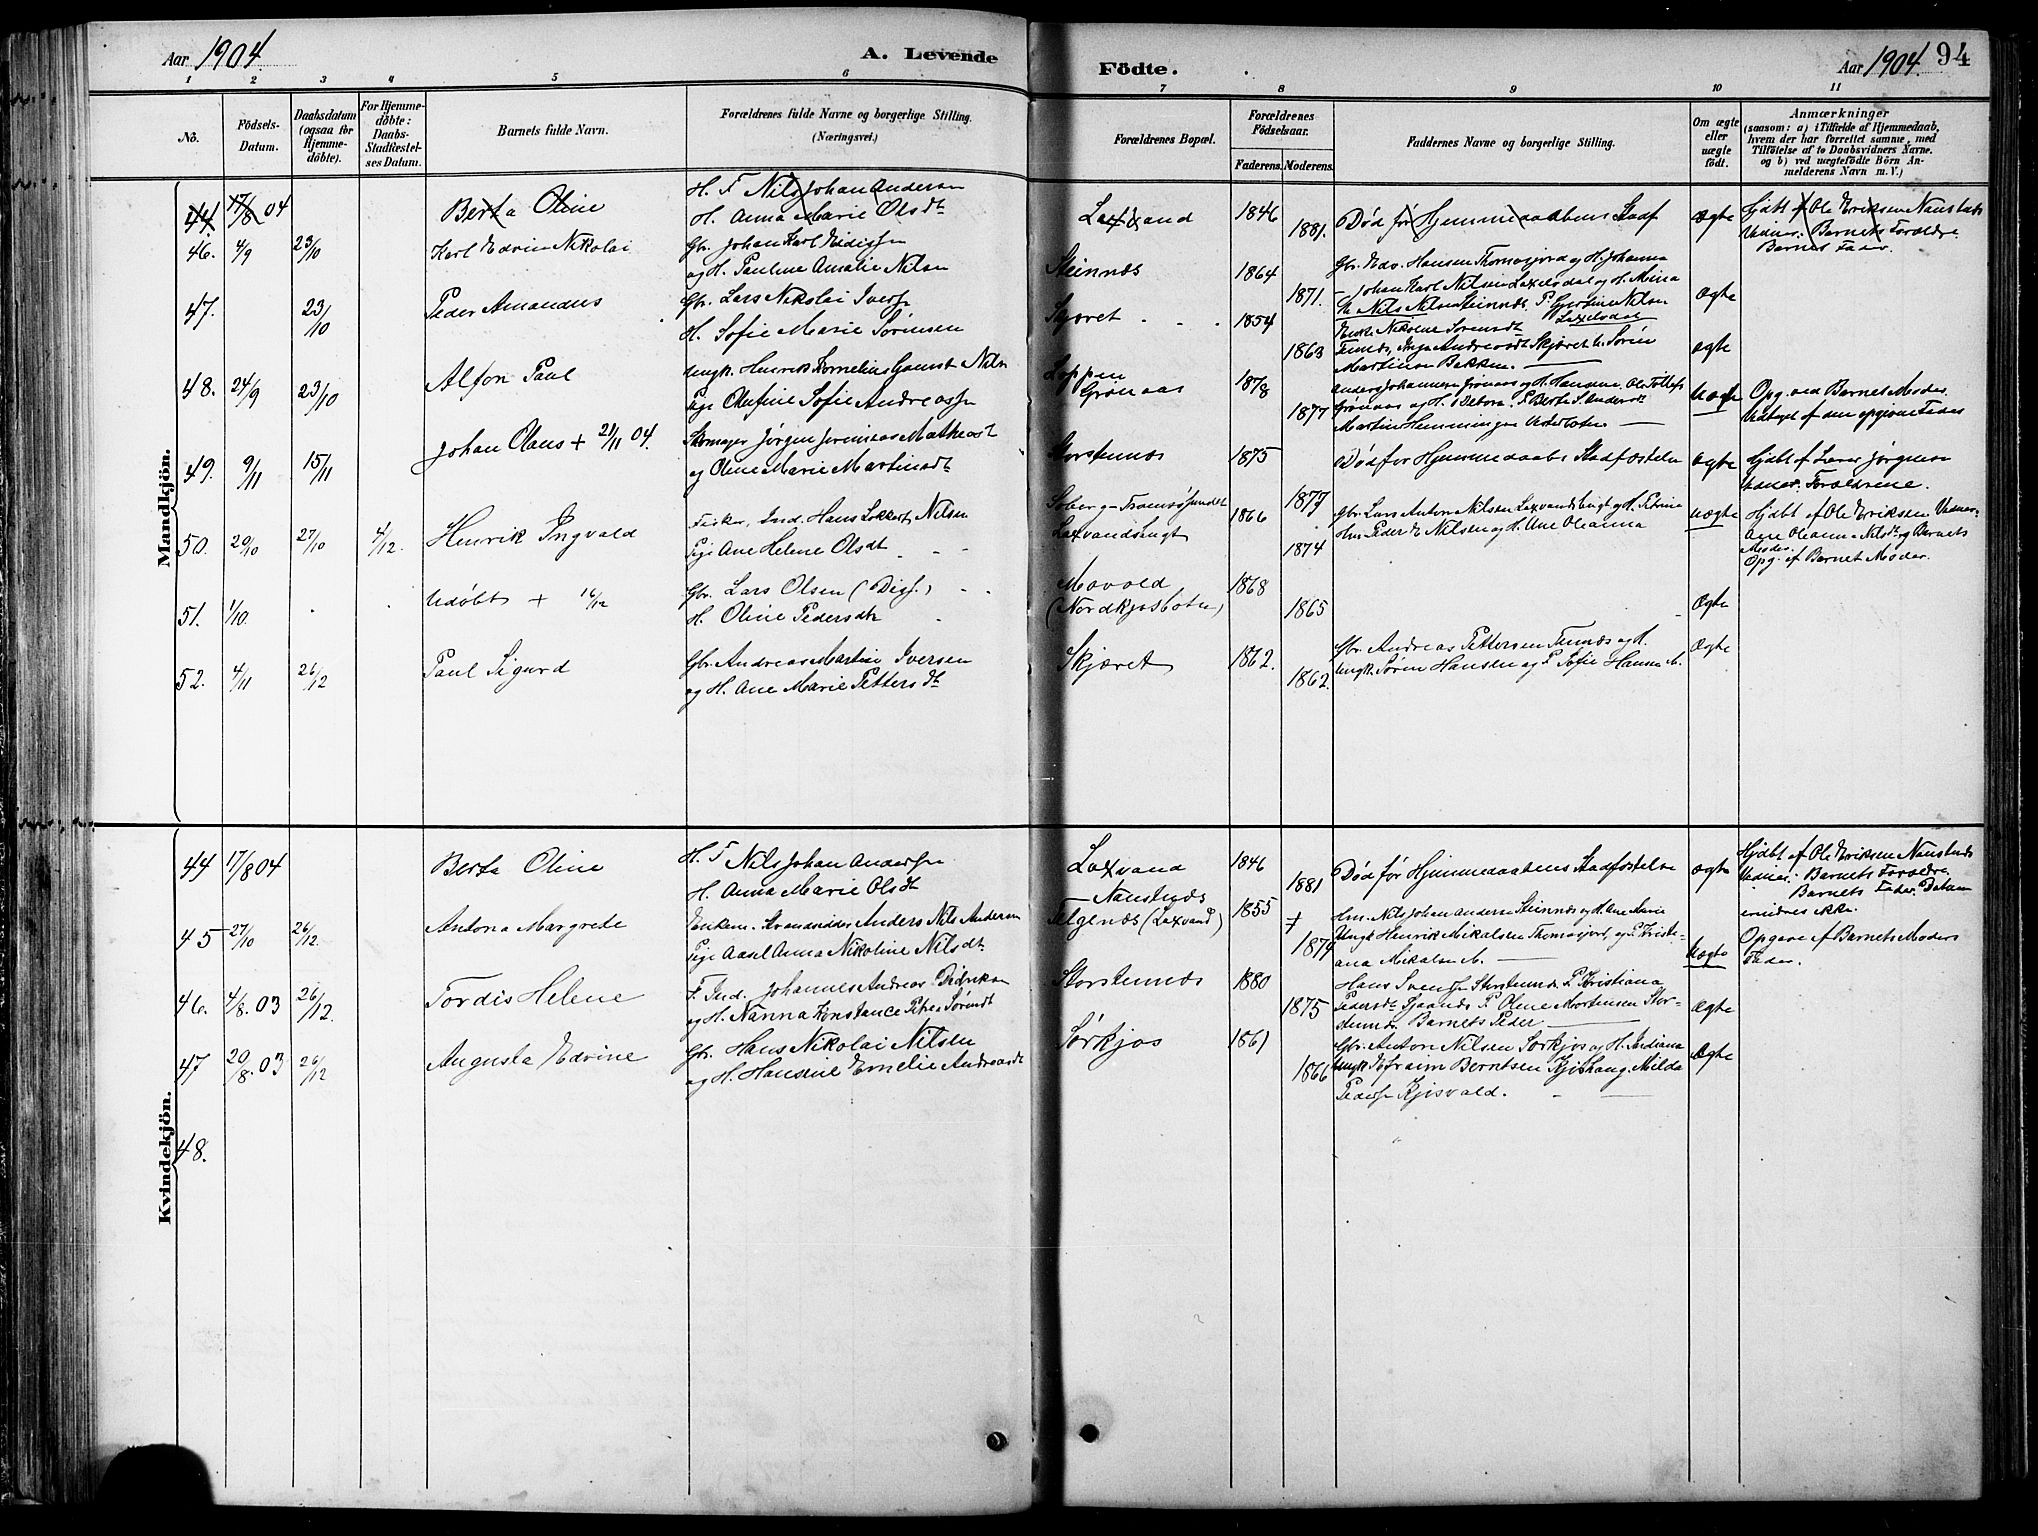 Aar 1904
A. Levende
Födte.
Aar 1904. 94
1 2 3 4 5 6 7 8 9 10 11
No.
Födsels-Datum.
Daabsdatum (ogsaa for Hjemme-döbte).
For Hjemme-döbte: Daabs-Stadfæstel-ses Datum.
Barnets fulde Navn.
Forældrenes fulde Navne og borgerlige Stilling.
(Næringsvei.)
Forældrenes Bopæl.
Forældrenes Födselsaar.
Faderens. Moderens.
Faddernes Navne og borgerlige Stilling.
Om ægte eller uægte födt.
Anmærkninger
(saasom: a) i Tilfælde af Hjemmedaab,
hvem der har forrettet samme, med
Tilföielse af to Daabsvidners Navne.
og b) ved uægtefödte Börn An-
melderens Navn m. V.)
Mandkjön.
44. 17/8 04 Berta Oline H. F Nils Johan Andersen
H. Anna Marie Olsdt
Laxvand 1846 1881. Død før Hjemmedaabens Stadf ægte
Hjdbt af Ole Eriksen Naustnæs
Vidner: Barnets Forældre
Barnets Fader.
46. 4/9 23/10 Karl Edvin Nikolai Gbr. Johan Karl
og H. Pauline Amalie Nilsen
Steinnæs 1864 1871.
Gbr. Edv. Hansen Thomasjord og H. Johanna
Johan Karl Nilsen Laxelvdal og H. Mina
Nils Nilsen Steinnæs. P. Nilsen
Laxelvdal
Ægte
47. 23/10 Peder Amandus Gbr. Lars Nikolai Ivers
H. Sofie Marie Sørensen
Skjæret 1854 1863
Nikoline Sørensdt
Andreasdt Skjæret U. Sørin
Martinsen Bakken.
ægte
48. 24/9 23/10 Alfon Paul Ungk. Henrik Kornelius Gamst Nilsen
Pige Olufine Sofie Andreass
Loppen
Grønaas
1878 1877
Anders Johannesen Grønaas og H. Hansine. Ole
Grønaas og H. Debora. P. Berte S. Andersdt
Martin Henningsen
Uægte
Opg. ved Barnet Moder.
Udtaget af den opgivne Fader
49. 9/11 15/11 Johan Olaus + 21/11 04. Jørgen Jeremias Mathiasdt
og Oline Marie Martinsdt
Storstennæs 1875 1877
Død før Hjemmedaabs Stadfæstelse ægte
Hjdbt af Jørgensen
Vidner. Forældrene.
50. 20/10 27/10 4/12. Henrik Ingvald Fisker, Ind. Hans Nilsen
Pige Ane Helene Olsdt
Tromsøsundet
Laxvandsbugt
1866 1874
Gbr. Lars Anton Nilsen Laxvandsbugt og H. Petrina
Hm Peder E Nilsen og H. Ane Oleanna
Uægte
Hjdbt af Ole Eriksen Vidner:
Ane Oleanna Nilsdt og Barnets
Moder.
Opg. af Barnet Moder.
51. 1/10. Udøbt + 16/12 Gbr. Lars Olsen
H. Oline Pedersdt
Movold
(Nordkjosboten)
1868 1865 Ægte
52. 4/11 26/12 Paul Sigurd Gbr. Andreas Martin Iversen
og H. Ane Marie Pettersdt
Skjæret 1862. 1862.
Gbr. Andreas Pettersen og H.
Ungk. Søren Hansen og P. Sofie Hansen
Ægte
Kvindekjön.
44 17/8 04 Berta Oline H. F Nils Johan Anders
H. Anna Marie Olsdt
Laxvand
Naustnæs
1846 1881
Død før Hjemmedaabens Stadfæstelse ægte
Hjdbt af Ole Eriksen Naustnæs
Vidner: Barnets Forældre
Barnets Fader. Datum
erindres ikke.
45 27/10 26/12. Antona Margrete Enkem. Strandsidder Anders Nils Andersen
Pige Aasel Anna Nikoline Nilsdt
(Laxvand) 1855 + 1879
Hm. Nils Johan Anders Steinnæs og H. Ane Marie
Ungk Henrik Mikalsen Thomasjord, og P. Kristi-
ana Mikalsen
Uægte
Opgave af Barnets Moders
Fader.
46. 4/8. 03 26/12. Tordis Helene F. Ind. Johannes Andreas Didriksen
og H. Nanna Konstance Petrea Sørensdt
Storstennæs 1880 1875
Hans Svens Storstennæs P. Kristiana
Pedersdt P. Oline Mortensen Stor-
stennæs. Barnets Fader
Ægte
47 20/8. 03 26/12 Augusta Edvine Gbr. Hans Nikolai Nilsen
og H. Hansine Emelie Andreasdt
Sørkjos 1861 1866
Gbr. Anton Nilsen Sørkjos og H. Andiana
Ungk. Efraim Berntsen Milda
Peders Kjosvold.
Ægte
48.